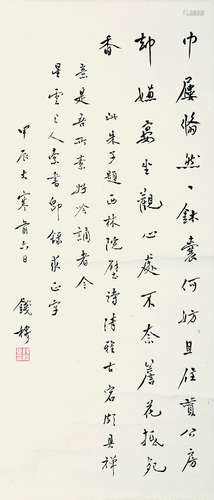 巾屨翛然一鉢囊何妨且住贊公房
却嫌宴坐觀心處不奈簷花抵死
香 此朱子題西林院壁詩清雅古宕頗具禪
意是吾所素好吟誦者今
星雲上人索書即錄求正字
甲辰大寒前六日 錢穆